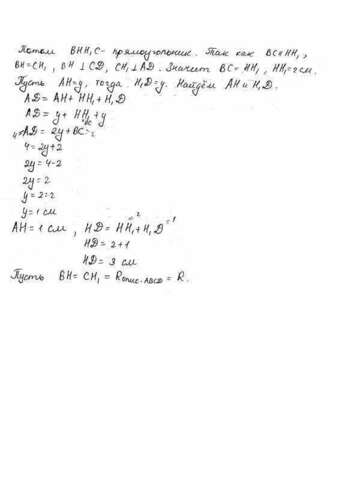 Потом BHH₁C - прямоугольник. Так как BC ∥ HH₁,
BH = CH₁, BH ⊥ CD, CH₁ ⊥ AD. Значит BC = HH₁, HH₁ = 2 см.
Пусть AH = y, тогда H₁D = y. Найдём AH и H₁D.
AD = AH + HH₁ + H₁D
AD = y + HH₁ + y
BC
4 = AD = 2y + BC = 2
4 = 2y + 2
2y = 4 - 2
2y = 2
y = 2 : 2
y = 1 см
AH = 1 см, HD = HH₁ = 2 + H₁D = 1
HD = 2 + 1
HD = 3 см
Пусть BH = CH₁ = Rопис. ABCD = R.